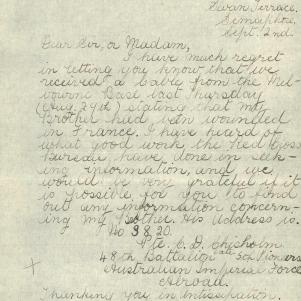 Swan Terrace,
Semaphore
Sept. 2nd.
Dear Sir, or Madam,
I have much regret
in letting you know that we
received a cable from the Mel-
bourne Base last Thursday
(Aug. 29th) stating that my
Brother had been wounded
in France. I have heard of
what good work the Red Cross
Bureau, have done in seek-
ing information, and we
would be very grateful if it
is possible for you to find
out any information concern-
ing my Brother. His Address is.
No 3820.
Pte. C. D. Chisholm
48th Battalion late 5th Pioneers
Australian Imperial Force
Abroad.
Thanking you in Anticipation.